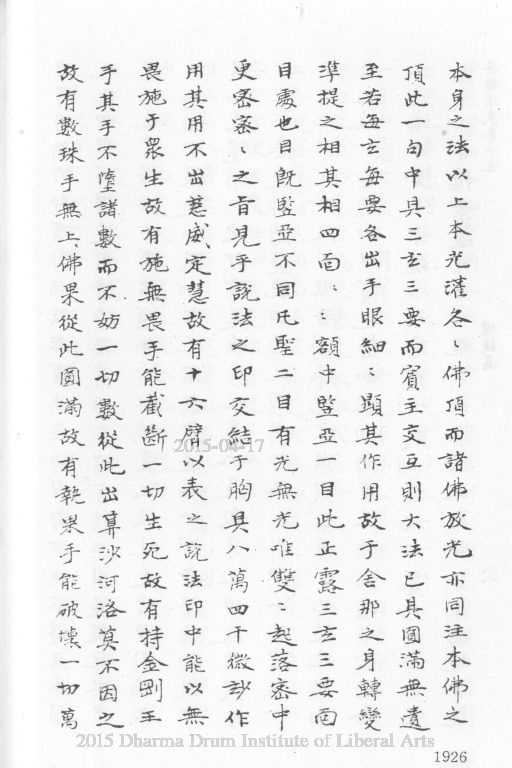 本身之法以上本光灌各〻佛頂而諸佛放光亦同注本佛之
頂此一句中具三玄三要而賓主交互則大法已具圓滿無遺
至若每玄每要各出手眼細〻顯其作用故于舍那之身轉變
準提之相其相四面〻〻額中豎亞一目此正露三玄三要面
目處也目既豎亞不同凡聖二目有光無光唯雙〻起落密中
更密密〻之旨見乎說法之印交結于胸具八萬四千微玅作
用其用不出慈威定慧故有十六臂以表之說法印中能以無
畏施于眾生故有施無畏手能截斷一切生死故有持金剛王
手其手不墮諸數而不妨一切數從此出算沙河洛莫不因之
故有數珠手無上佛果從此圓滿故有執果手能破壞一切萬
2015-04-17
2015 Dharma Drum Institute of Liberal Arts
1926